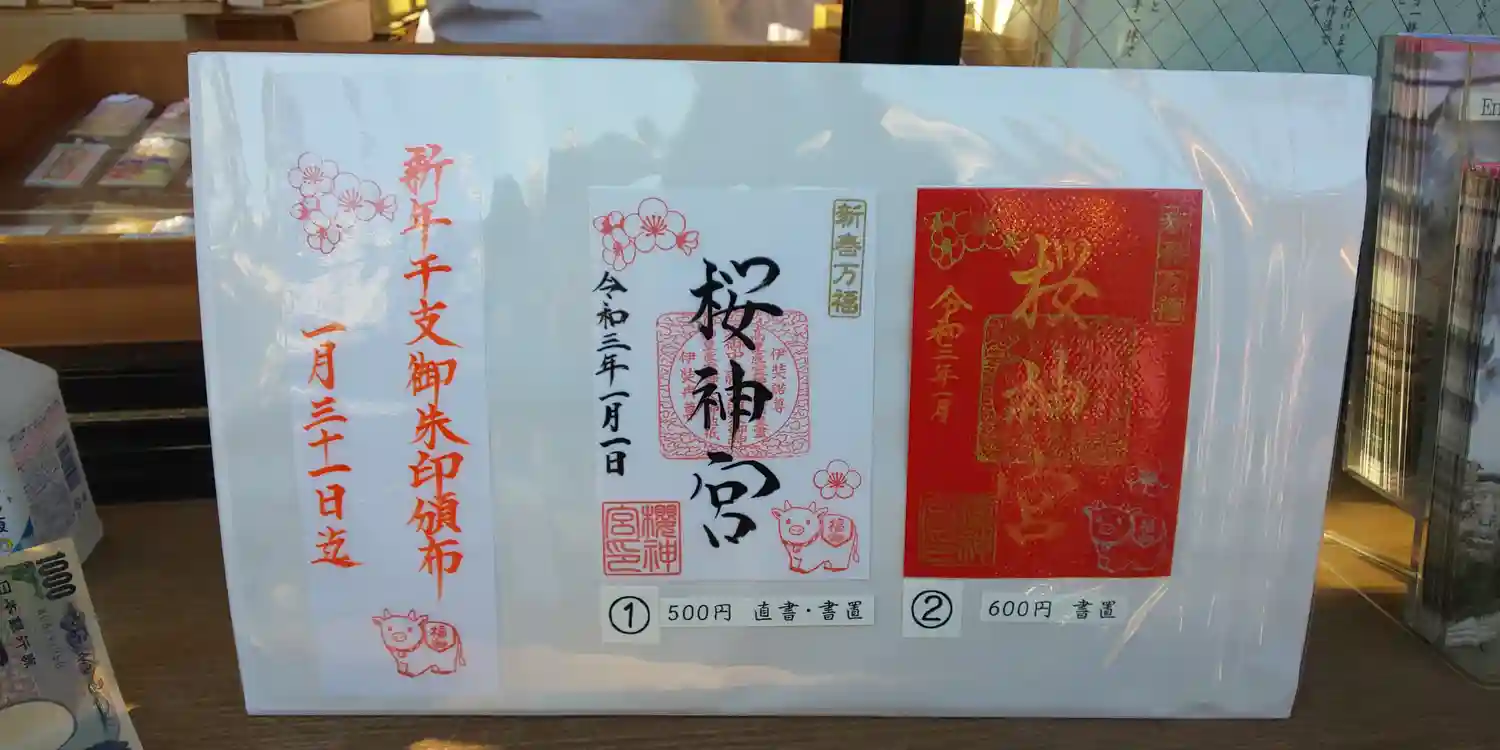 新年干支御朱印頒布
一月三十一日迄
福
新春万福
桜神宮
令和三年一月一日
伊弉諾尊
櫻神
宮印
福
① 500円 直書・書置
新春万福
桜神宮
令和三年一月
② 600円 書置
1000
En